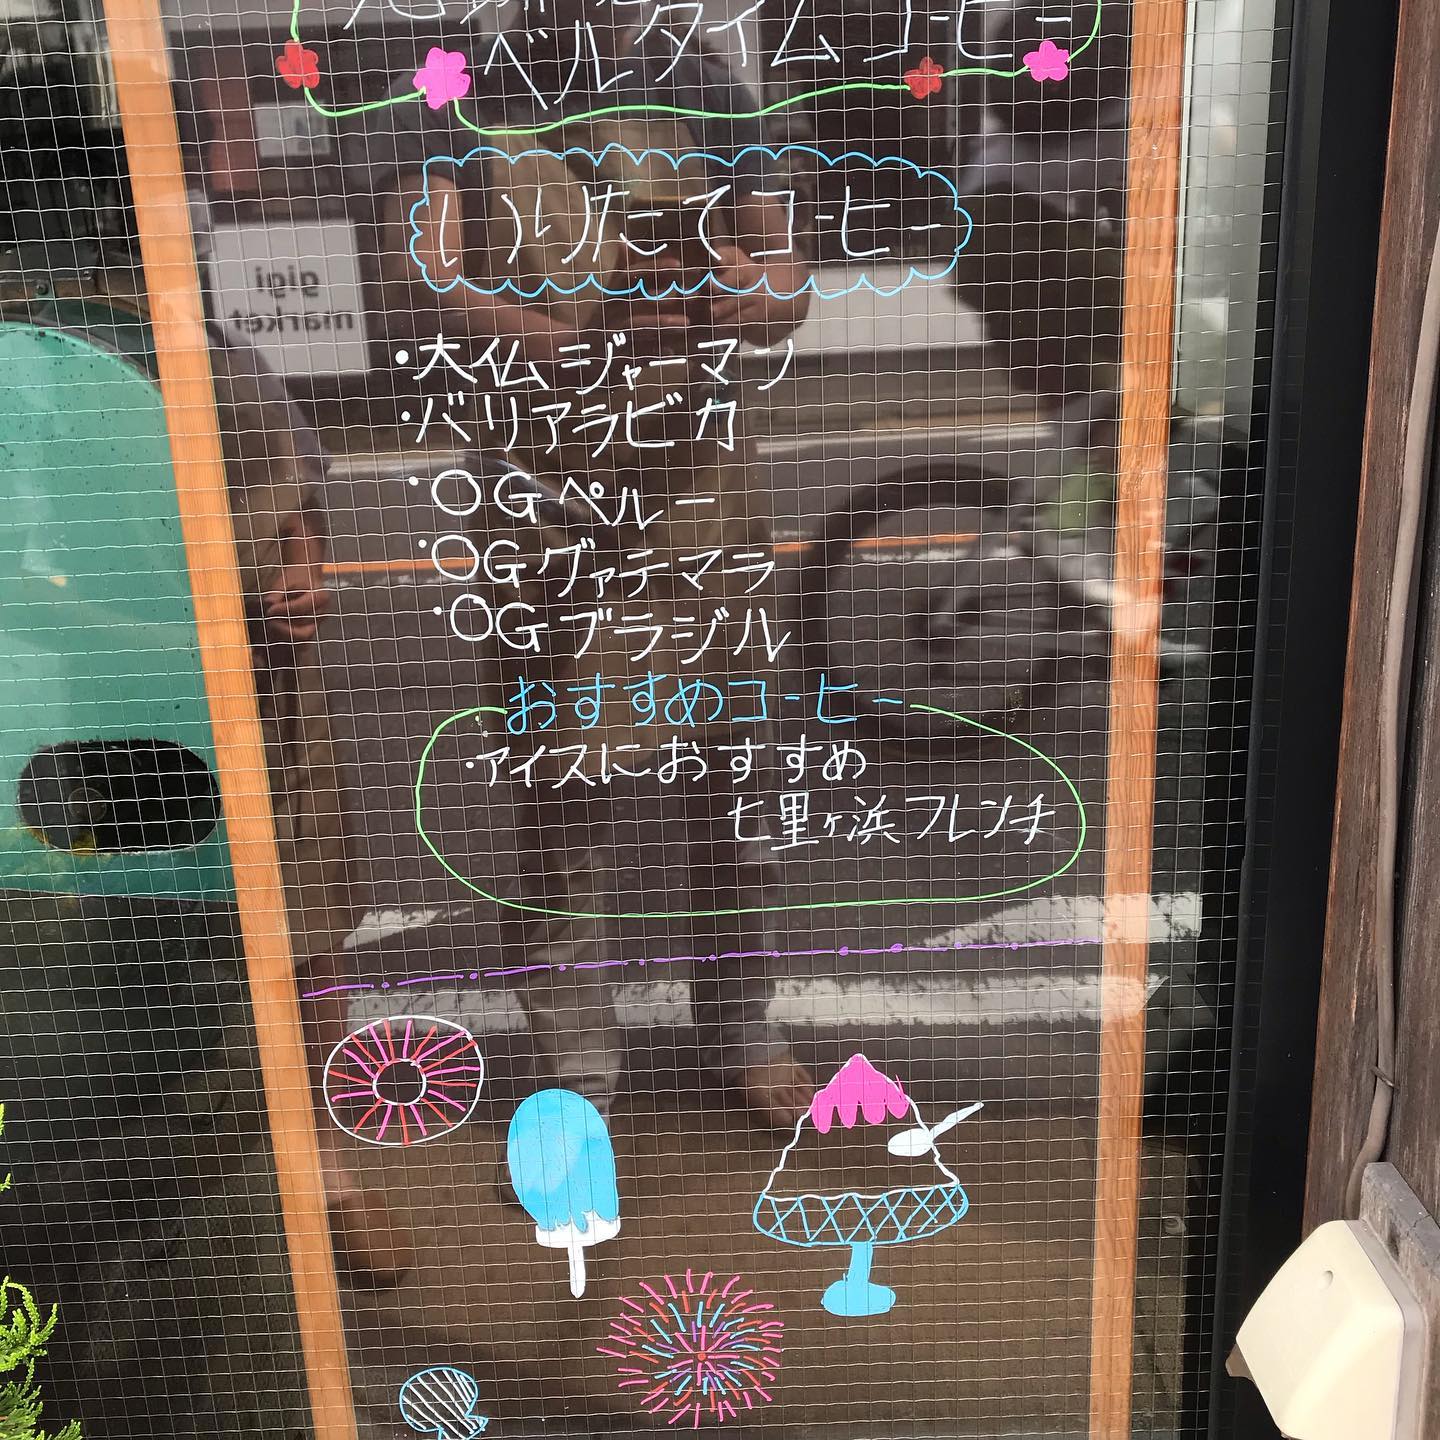 ベルタイムコーヒー
いりたてコーヒー
・大仏ジャーマン
・バリアラビカ
・OGペルー
・OGグァテマラ
・OGブラジル
おすすめコーヒー
・アイスにおすすめ
七里ヶ浜フレンチ
gigi
market